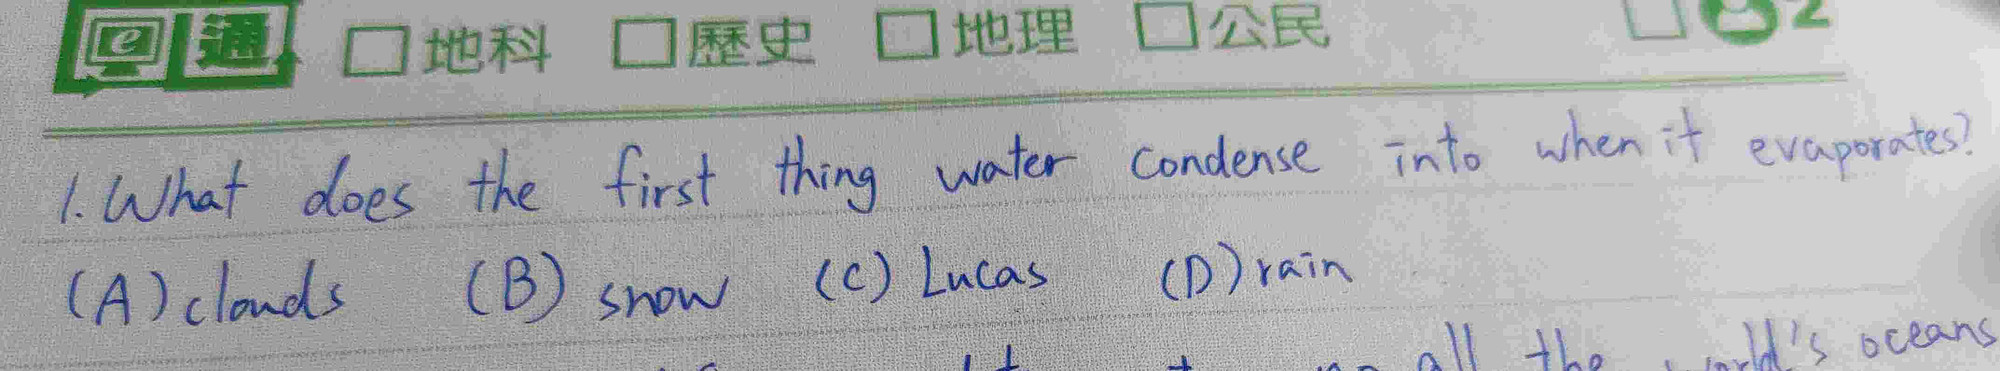 e 通 □地科 □歷史 □地理 □公民 □ 2
1. What does the first thing water condense into when it evaporates?
(A) clouds (B) snow (C) Lucas (D) rain
all the world's oceans